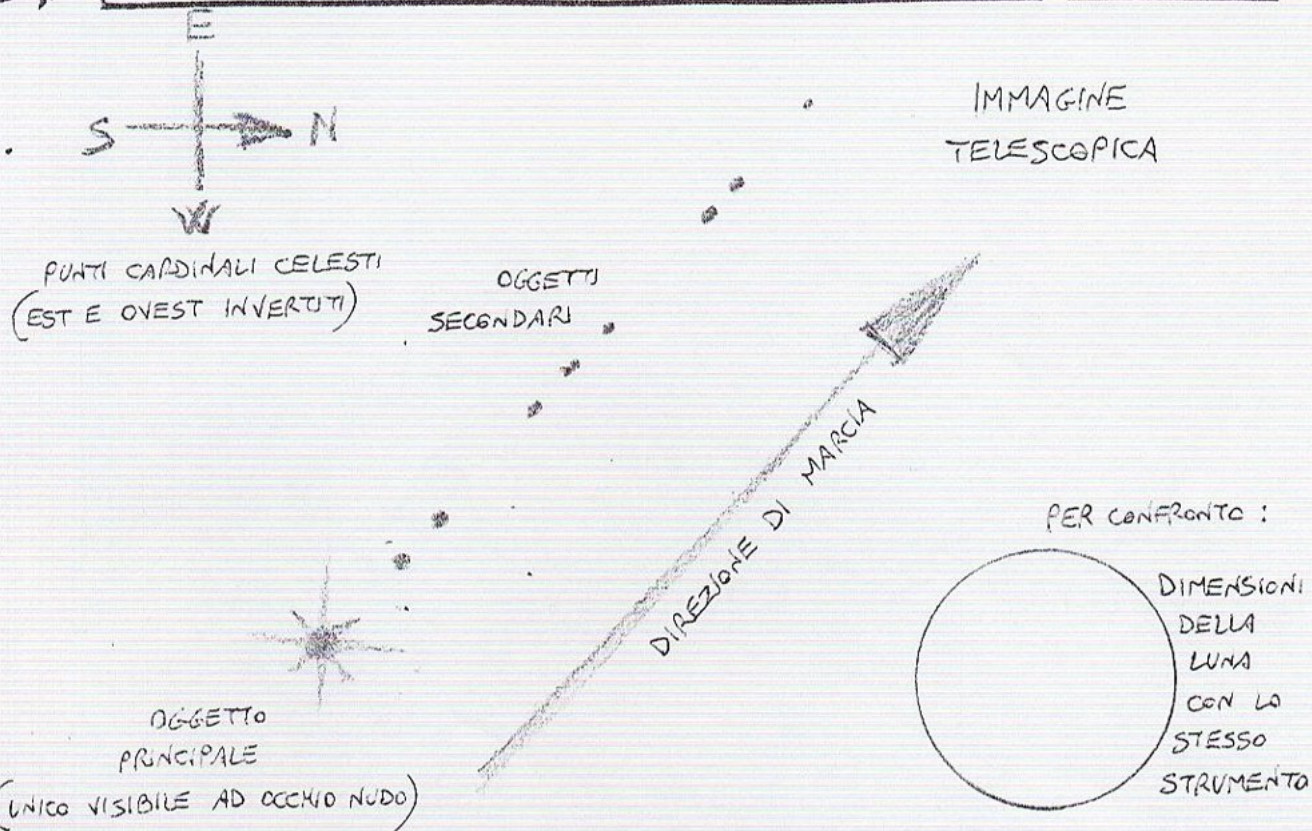 E
S N
W
PUNTI CARDINALI CELESTI
(EST E OVEST INVERTITI)
IMMAGINE
TELESCOPICA
OGGETTI
SECONDARI
DIREZIONE DI MARCIA
PER CONFRONTO :
DIMENSIONI
DELLA
LUNA
CON LO
STESSO
STRUMENTO
OGGETTO
PRINCIPALE
(UNICO VISIBILE AD OCCHIO NUDO)